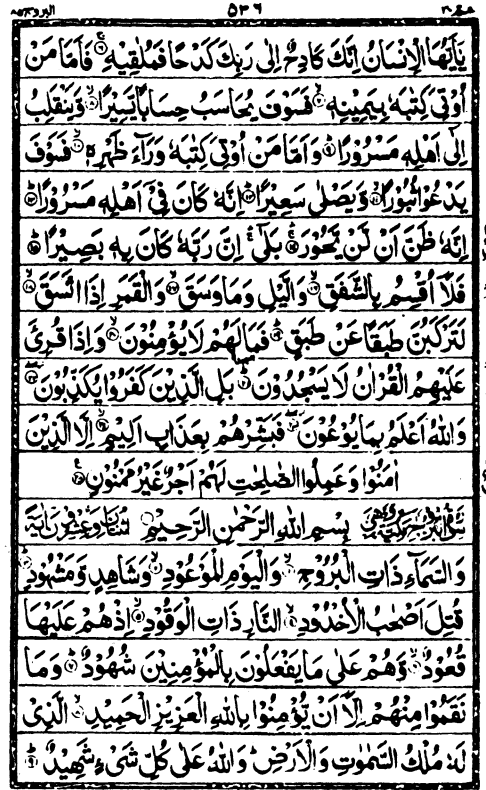 عم ٣٠ ٥٣٦ البروج ٨٥
يٰٓاَيُّهَا الْاِنْسَانُ اِنَّكَ كَادِحٌ اِلٰى رَبِّكَ كَدْحًا فَمُلٰقِيْهِ ۚ﴿۶﴾ فَاَمَّا مَنْ
اُوْتِيَ كِتٰبَهٗ بِيَمِيْنِهٖ ۙ﴿۷﴾ فَسَوْفَ يُحَاسَبُ حِسَابًا يَّسِيْرًا ۙ﴿۸﴾ وَّيَنْقَلِبُ
اِلٰٓى اَهْلِهٖ مَسْرُوْرًا ؕ﴿۹﴾ وَاَمَّا مَنْ اُوْتِيَ كِتٰبَهٗ وَرَآءَ ظَهْرِهٖ ۙ﴿۱۰﴾ فَسَوْفَ
يَدْعُوْا ثُبُوْرًا ۙ﴿۱۱﴾ وَّيَصْلٰى سَعِيْرًا ؕ﴿۱۲﴾ اِنَّهٗ كَانَ فِيْٓ اَهْلِهٖ مَسْرُوْرًا ؕ﴿۱۳﴾
اِنَّهٗ ظَنَّ اَنْ لَّنْ يَّحُوْرَ ۚ﴿۱۴﴾ بَلٰٓى ۚ اِنَّ رَبَّهٗ كَانَ بِهٖ بَصِيْرًا ؕ﴿۱۵﴾
فَلَآ اُقْسِمُ بِالشَّفَقِ ۙ﴿۱۶﴾ وَالَّيْلِ وَمَا وَسَقَ ۙ﴿۱۷﴾ وَالْقَمَرِ اِذَا اتَّسَقَ ۙ﴿۱۸﴾
لَتَرْكَبُنَّ طَبَقًا عَنْ طَبَقٍ ؕ﴿۱۹﴾ فَمَا لَهُمْ لَا يُؤْمِنُوْنَ ۙ﴿۲۰﴾ وَاِذَا قُرِئَ
عَلَيْهِمُ الْقُرْاٰنُ لَا يَسْجُدُوْنَ ؕ﴿۲۱﴾ بَلِ الَّذِيْنَ كَفَرُوْا يُكَذِّبُوْنَ ۖ﴿۲۲﴾
وَاللّٰهُ اَعْلَمُ بِمَا يُوْعُوْنَ ۖ﴿۲۳﴾ فَبَشِّرْهُمْ بِعَذَابٍ اَلِيْمٍ ۙ﴿۲۴﴾ اِلَّا الَّذِيْنَ
اٰمَنُوْا وَعَمِلُوا الصّٰلِحٰتِ لَهُمْ اَجْرٌ غَيْرُ مَمْنُوْنٍ ﴿۲۵﴾
سُوْرَةُ الْبُرُوْجِ مَكِّيَّةٌ وَّهِيَ بِسْمِ اللّٰهِ الرَّحْمٰنِ الرَّحِيْمِ اثْنَتَانِ وَعِشْرُوْنَ اٰيَةً
وَالسَّمَآءِ ذَاتِ الْبُرُوْجِ ۙ﴿۱﴾ وَالْيَوْمِ الْمَوْعُوْدِ ۙ﴿۲﴾ وَشَاهِدٍ وَّمَشْهُوْدٍ ؕ﴿۳﴾
قُتِلَ اَصْحٰبُ الْاُخْدُوْدِ ۙ﴿۴﴾ النَّارِ ذَاتِ الْوَقُوْدِ ۙ﴿۵﴾ اِذْ هُمْ عَلَيْهَا
قُعُوْدٌ ۙ﴿۶﴾ وَّهُمْ عَلٰى مَا يَفْعَلُوْنَ بِالْمُؤْمِنِيْنَ شُهُوْدٌ ؕ﴿۷﴾ وَمَا
نَقَمُوْا مِنْهُمْ اِلَّآ اَنْ يُّؤْمِنُوْا بِاللّٰهِ الْعَزِيْزِ الْحَمِيْدِ ۙ﴿۸﴾ الَّذِيْ
لَهٗ مُلْكُ السَّمٰوٰتِ وَالْاَرْضِ ؕ وَاللّٰهُ عَلٰى كُلِّ شَيْءٍ شَهِيْدٌ ؕ﴿۹﴾